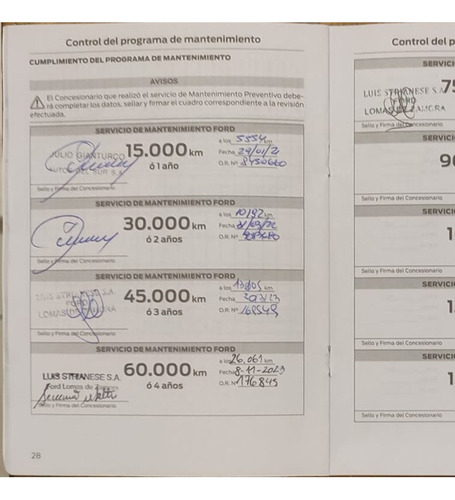 Control del programa de mantenimiento
CUMPLIMIENTO DEL PROGRAMA DE MANTENIMIENTO
AVISOS
El Concesionario que realizó el servicio de Mantenimiento Preventivo debe-
rá completar los datos, sellar y firmar el cuadro correspondiente a la revisión
efectuada.
SERVICIO DE MANTENIMIENTO FORD
JULIO GIANTURCO
AUTOS DEL SUR S.A.
15.000 km
ó 1 año
a los 5554 km
Fecha 29/01/2
O.R. Nº
Sello y Firma del Concesionario
SERVICIO DE MANTENIMIENTO FORD
30.000 km
ó 2 años
a los 10192 km
Fecha
O.R. Nº
Sello y Firma del Concesionario
SERVICIO DE MANTENIMIENTO FORD
LUIS STRIANESE S.A.
FORD
LOMAS DE ZAMORA
45.000 km
ó 3 años
a los
Fecha
O.R. Nº 168549
Sello y Firma del Concesionario
SERVICIO DE MANTENIMIENTO FORD
LUIS STRIANESE S.A.
Ford Lomas de Zamora
60.000 km
ó 4 años
a los 26.061 km
Fecha 8-11-2023
O.R. Nº 176845
Sello y Firma del Concesionario
28
Control del p
SERVICI
LUIS STRIANESE S.A.
FORD
LOMAS DE ZAMORA
75
Sello y Firma del Concesionario
SERVICI
90
Sello y Firma del Concesionario
SERVICI
1
Sello y Firma del Concesionario
SERVICI
1
Sello y Firma del Concesionario
SERVICI
1
Sello y Firma del Concesionario